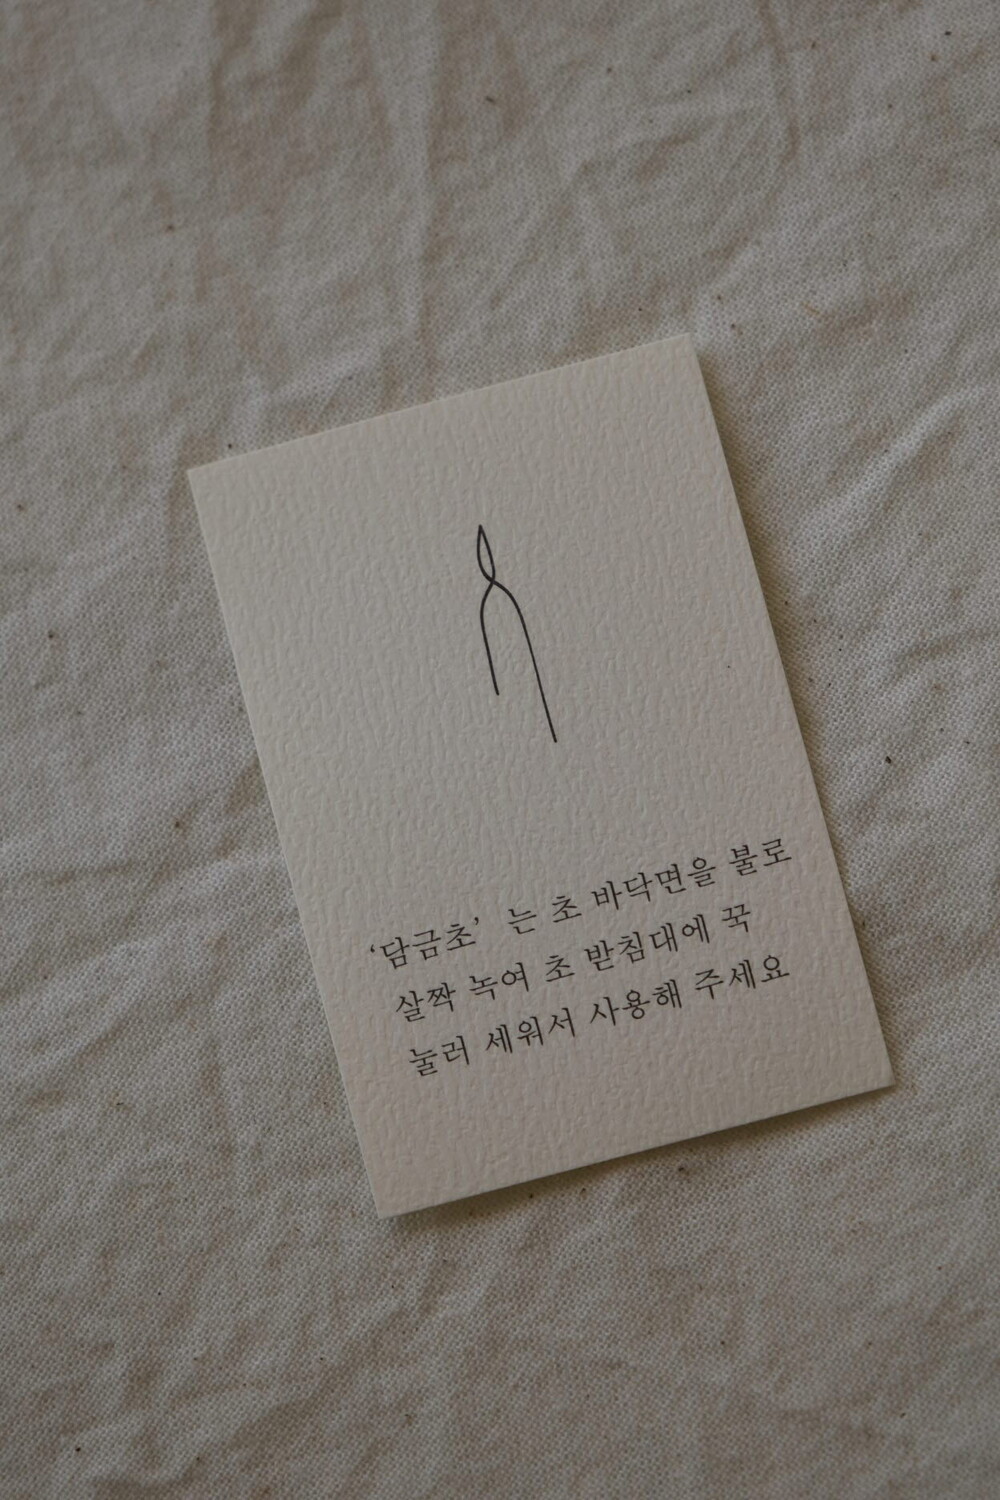 ‘담금초’ 는 초 바닥면을 불로
살짝 녹여 초 받침대에 꾹
눌러 세워서 사용해 주세요